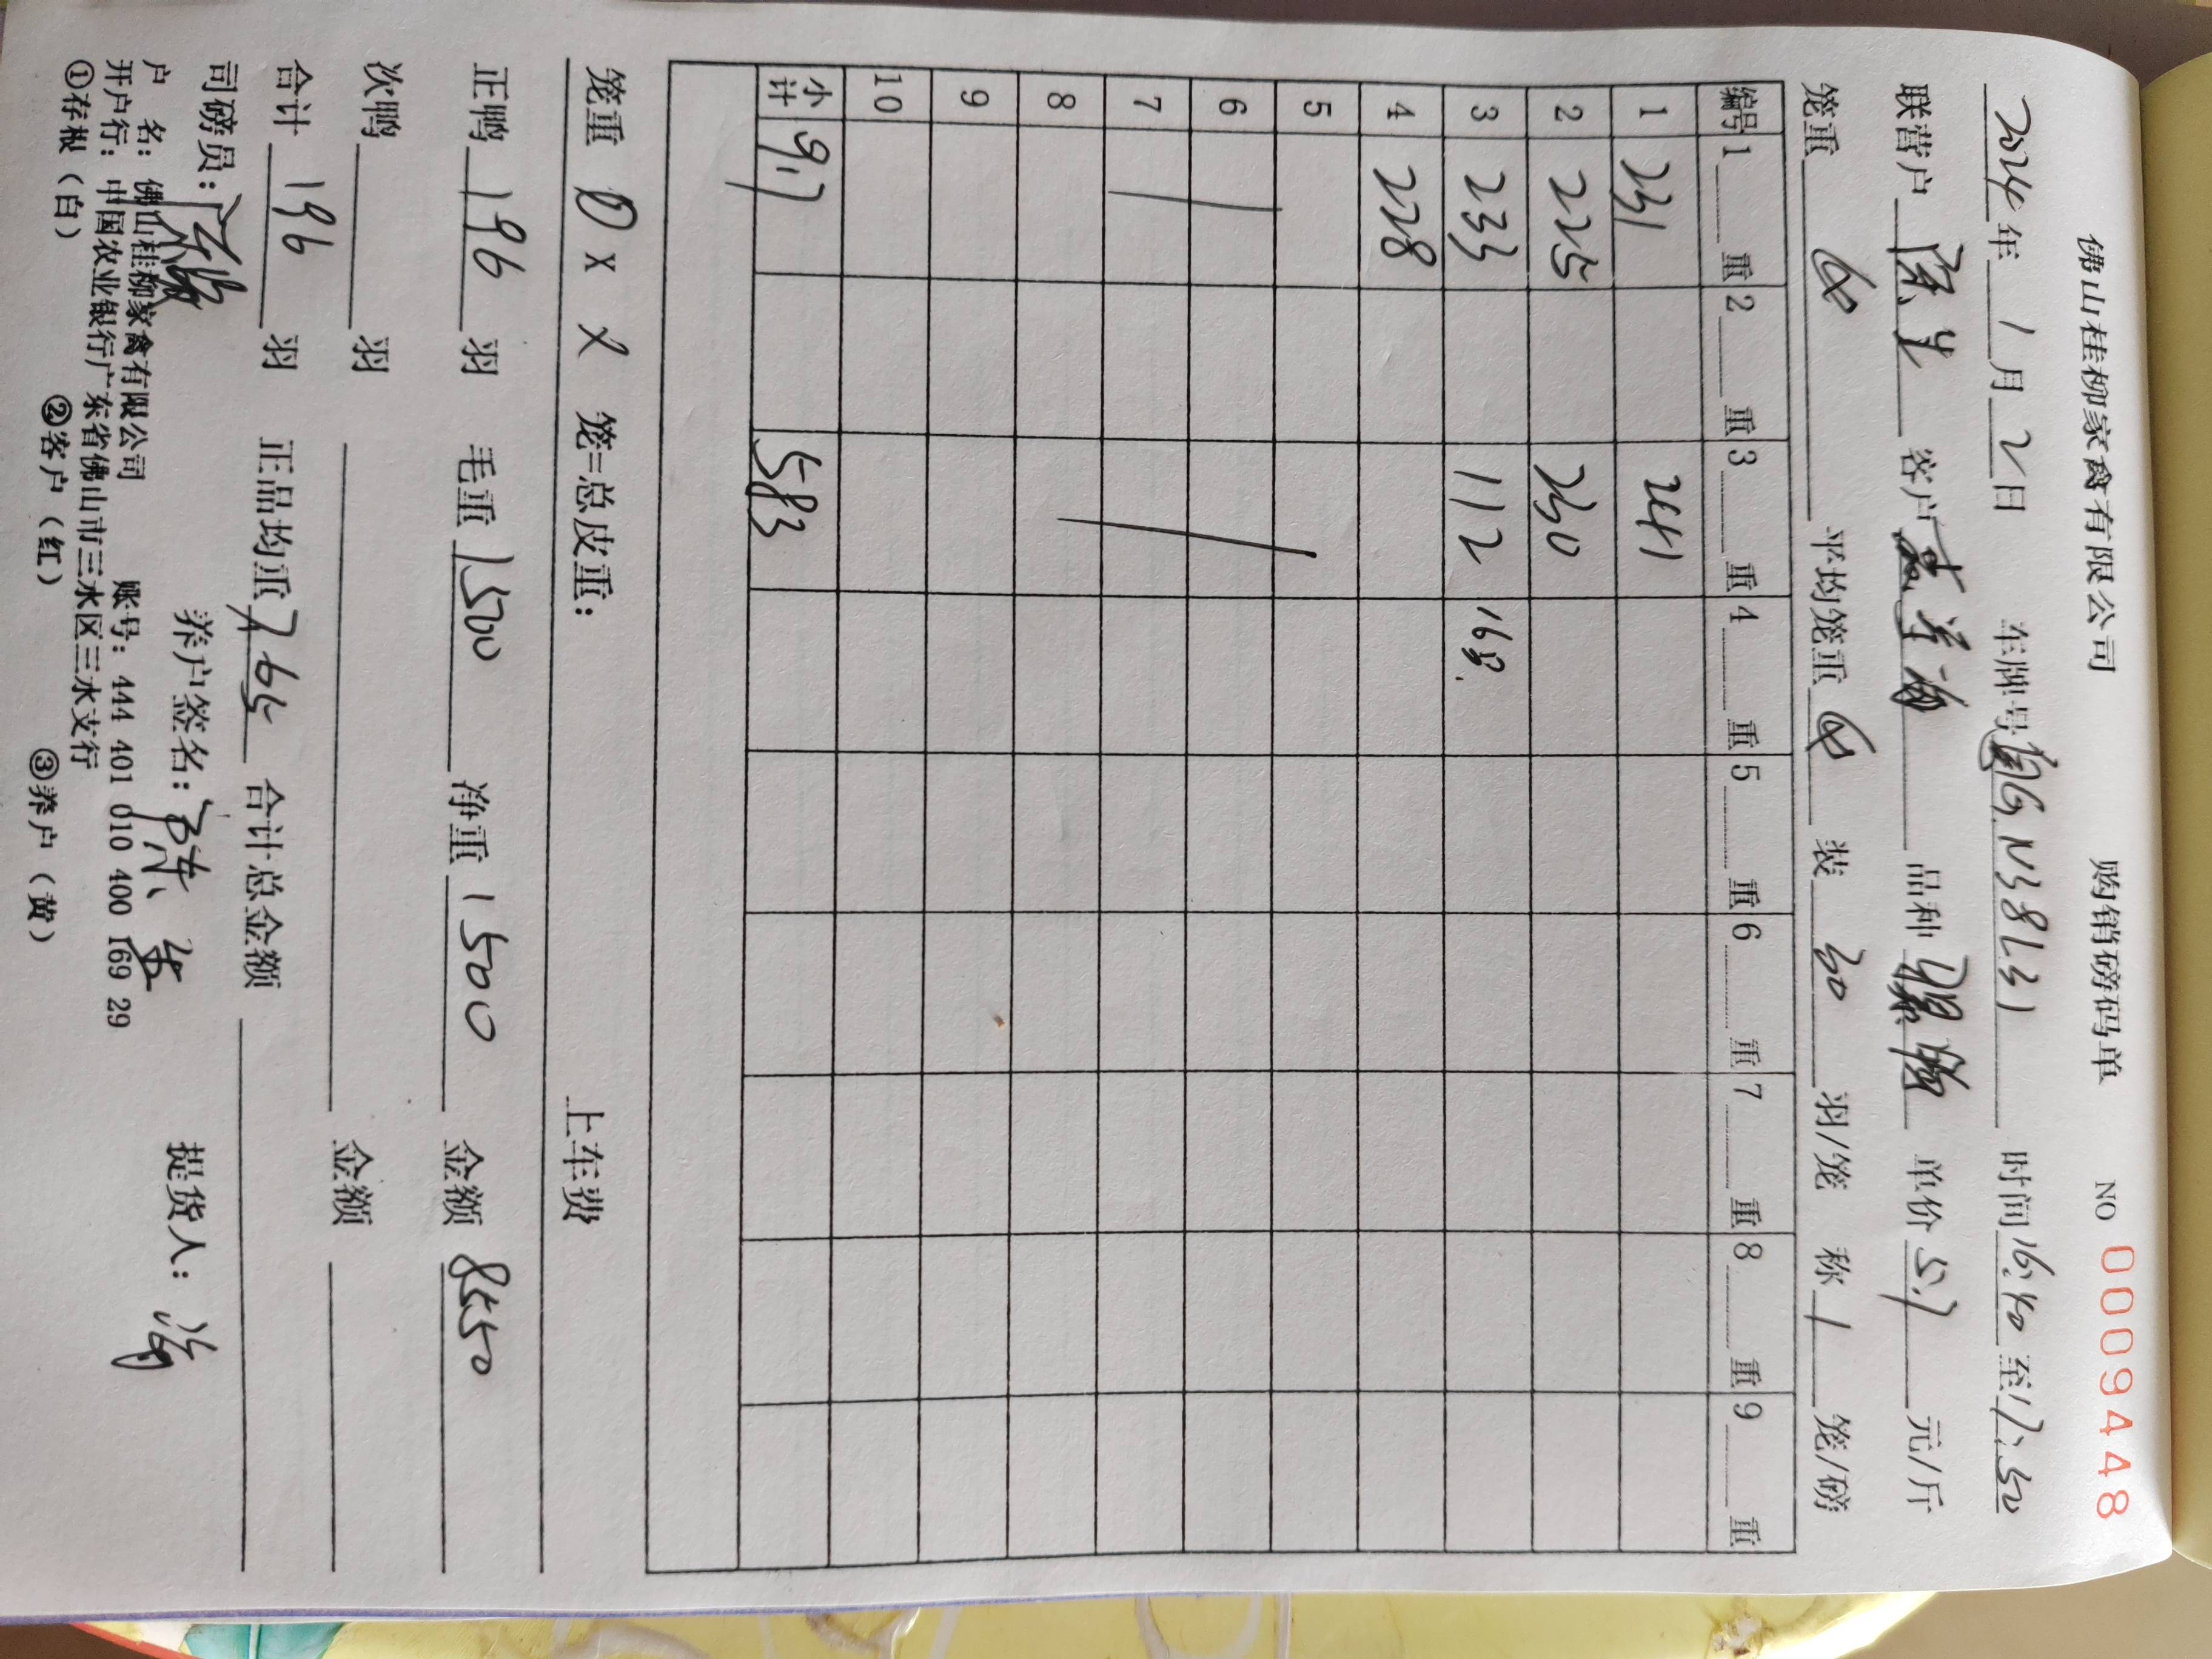 佛山桂柳家禽有限公司 购销磅码单 NO 0009448
2024年1月2日 车牌号 粤G N38L31 时间16:40至17:30
联营户 陈生 客户 品种 单价5.7元/斤
笼重 平均笼重 装30羽/笼 称1笼/磅
编号 1 重 2 重 3 重 4 重 5 重 6 重 7 重 8 重 9 重
1 231 241
2 225 230
3 233 112 16只
4 228
5
6
7
8
9
10
小计 917 583
笼重 0 X X 笼=总皮重: 上车费
正鸭 196 羽 毛重 1500 净重 1500 金额 8550
次鸭 羽 金额
合计 196 羽 正品均重 7.65 合计总金额
司磅员: 养户签名: 陈生 提货人:
户 名: 佛山桂柳家禽有限公司 账号: 444 401 010 400 169 29
开户行: 中国农业银行广东省佛山市三水区三水支行
①存根(白) ②客户(红) ③养户(黄)